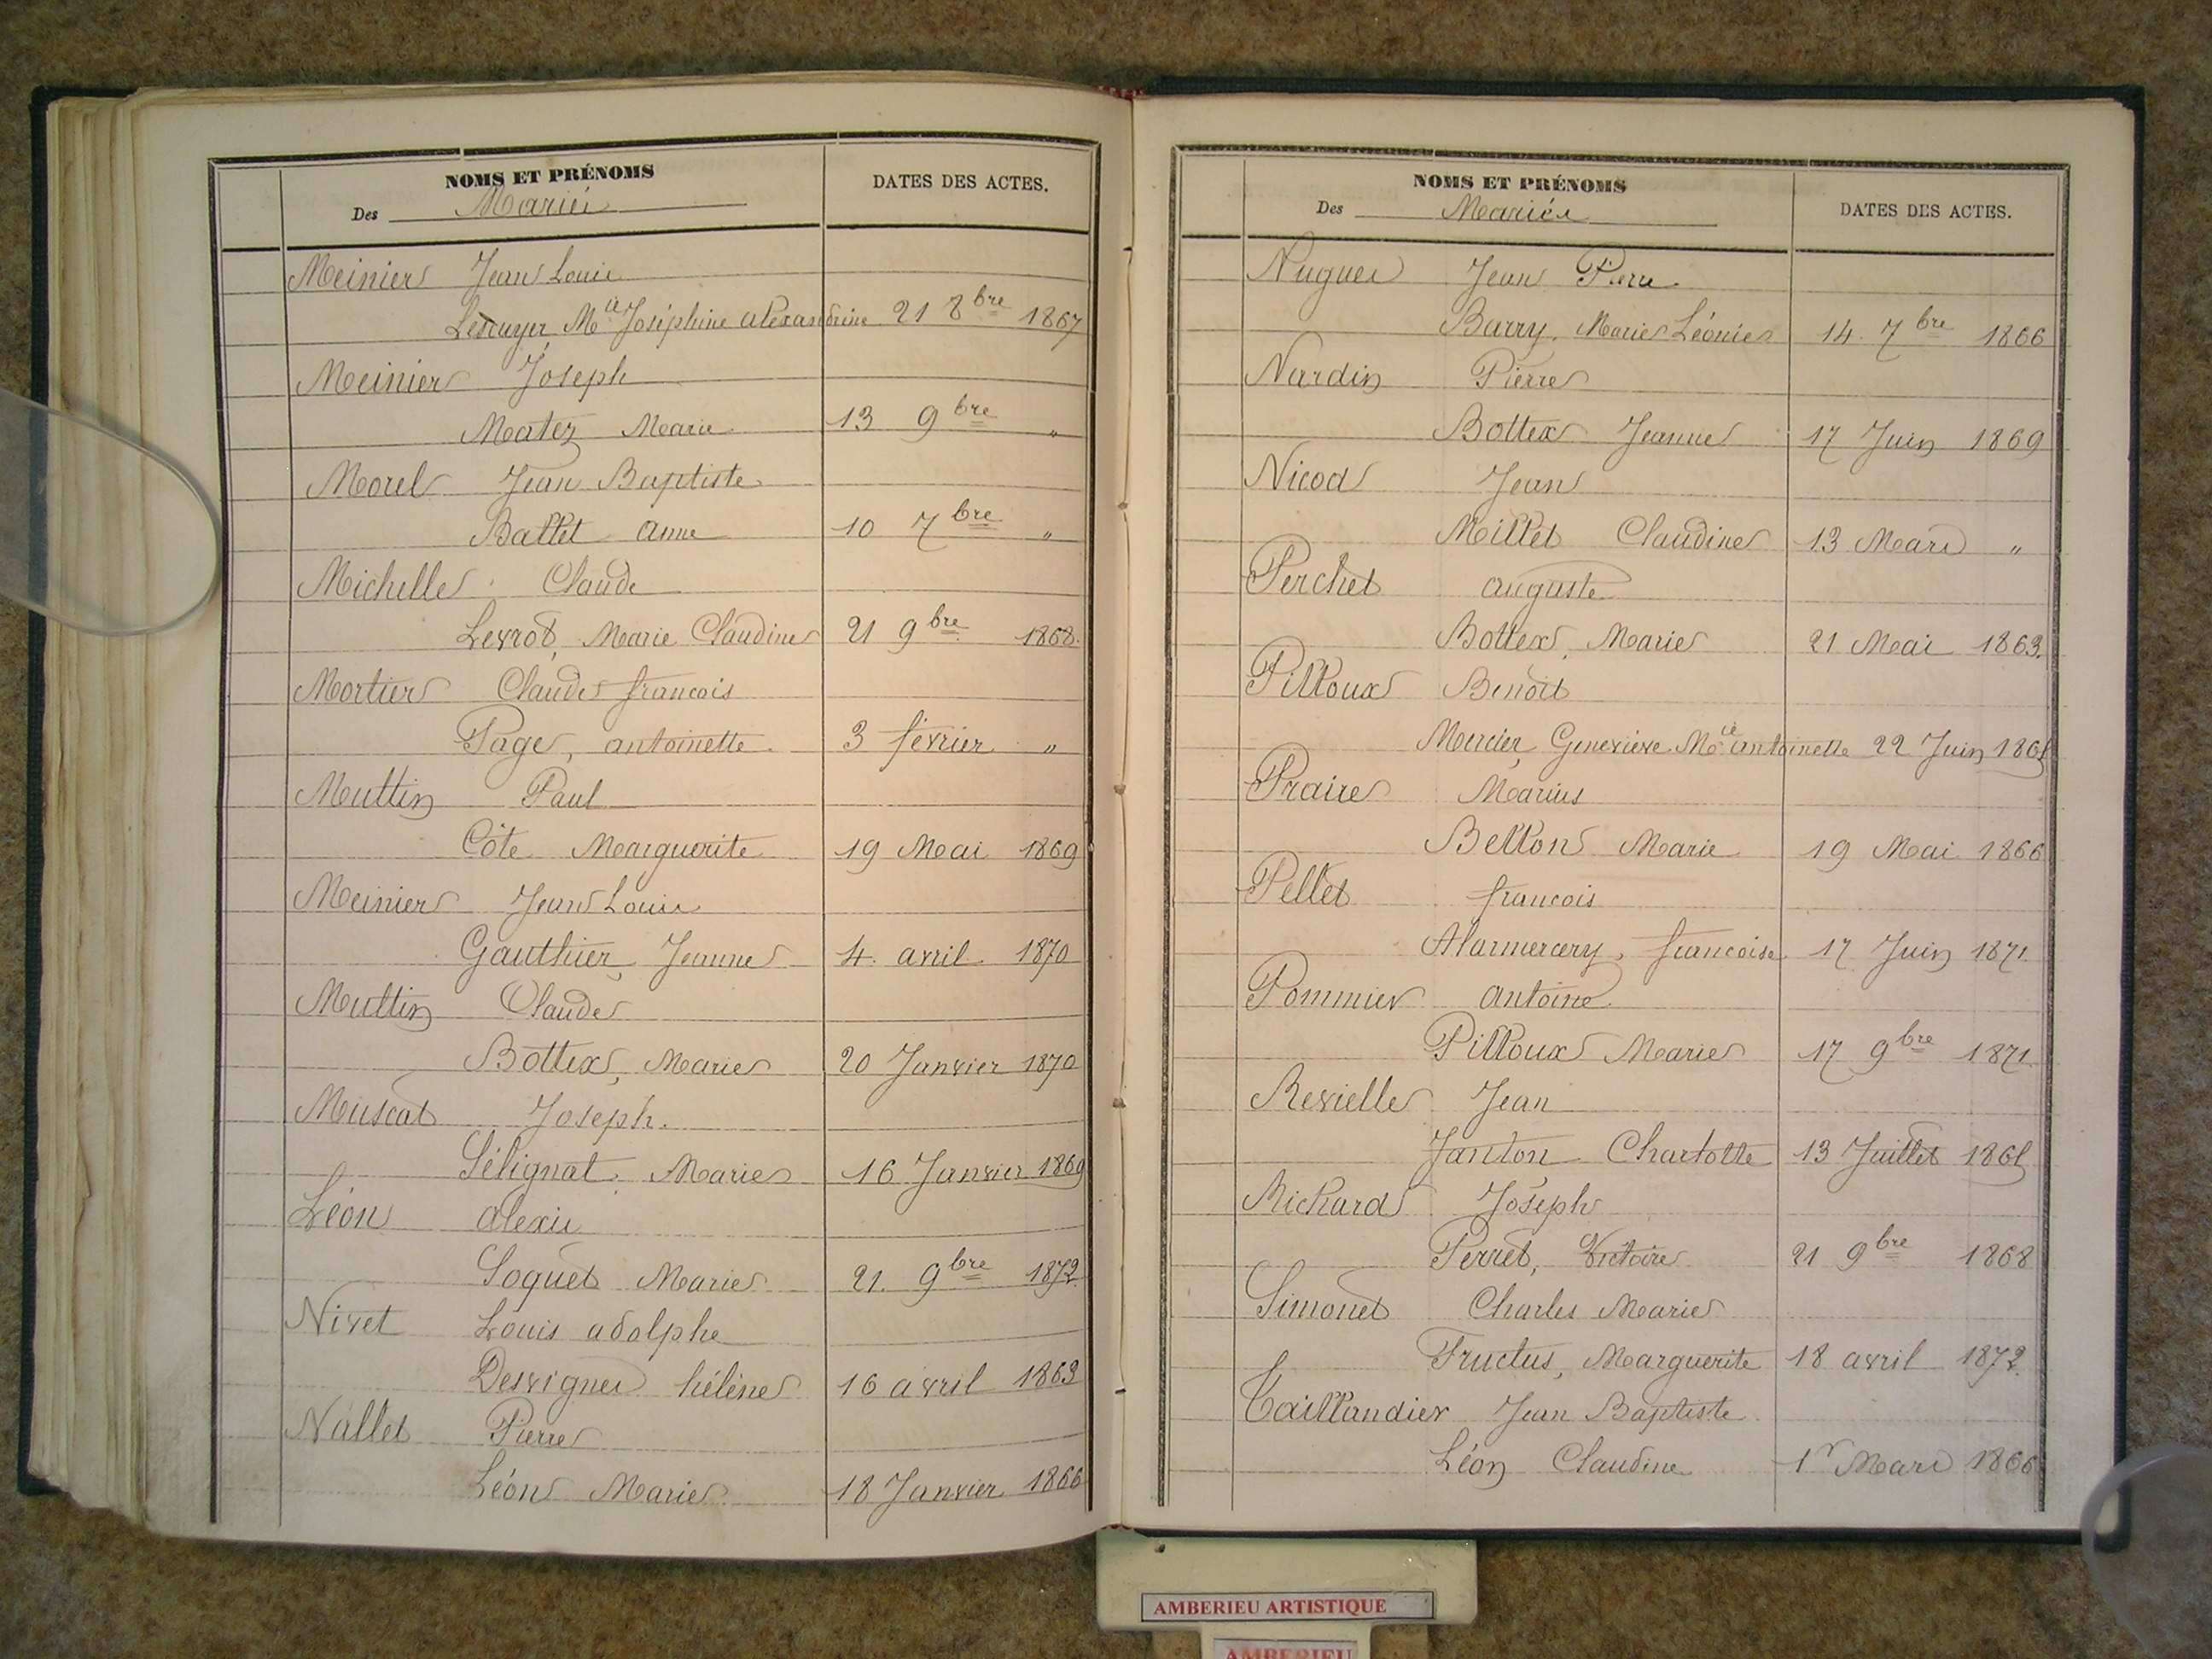 NOMS ET PRÉNOMS
Des Mariés
DATES DES ACTES.
Meinier Jean Louis
Lescuyer, Mie Joséphine alexandrine 21 8bre 1867
Meinier Joseph
Matez Marie 13 9bre "
Morel Jean Baptiste
Ballet anne 10 7bre "
Michelle Claude
Levrot, Marie Claudine 21 9bre 1868
Mortier Claude francois
Page, antoinette 3 février "
Muttin Paul
Côte Marguerite 19 Mai 1869
Meinier Jean Louis
Gauthier, Jeanne 4 avril 1870
Muttin Claude
Bottex, Marie 20 Janvier 1870
Muscat Joseph.
Sélignat, Marie 16 Janvier 1869
Léon alexis
Soquet Marie 21 9bre 1872
Nivet Louis adolphe
Desvignes hélène 16 avril 1863
Nallet Pierre
Léon Marie 18 Janvier 1866
NOMS ET PRÉNOMS
Des Mariés
DATES DES ACTES.
Nugues Jean Pierre
Barry, Marie Léonie 14 7bre 1866
Nardin Pierre
Bottex Jeanne 17 Juin 1869
Nicod Jean
Millet Claudine 13 Mars "
Perchet auguste
Bottex, Marie 21 Mai 1863
Pilloux Benoît
Mercier, Geneviève Mie antoinette 22 Juin
Praire Marius
Bellon Marie 19 Mai 1866
Pellet francois
Alarmercery, francoise 17 Juin 1871
Pommier antoine
Pilloux Marie 17 9bre 1871
Revielle Jean
Janton Charlotte 13 Juillet
Richard Joseph
Perret, Victoire 21 9bre 1868
Simonet Charles Marie
Fructus, Marguerite 18 avril 1872
Taillandier Jean Baptiste
Léon Claudine 1r Mars 1866
AMBERIEU ARTISTIQUE
AMBERIEU